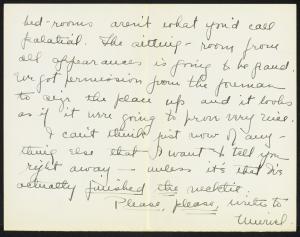 bed-rooms aren't what you'd call
palatial. The sitting-room from
all appearances is going to be grand.
We got permission from the foreman
to size the place up and it looks
as if it were going to prove very nice.
I can't think just now of any-
thing else that I want to tell you
right away – unless it's that I've
actually finished the necktie.
Please, please, write to
Muriel.